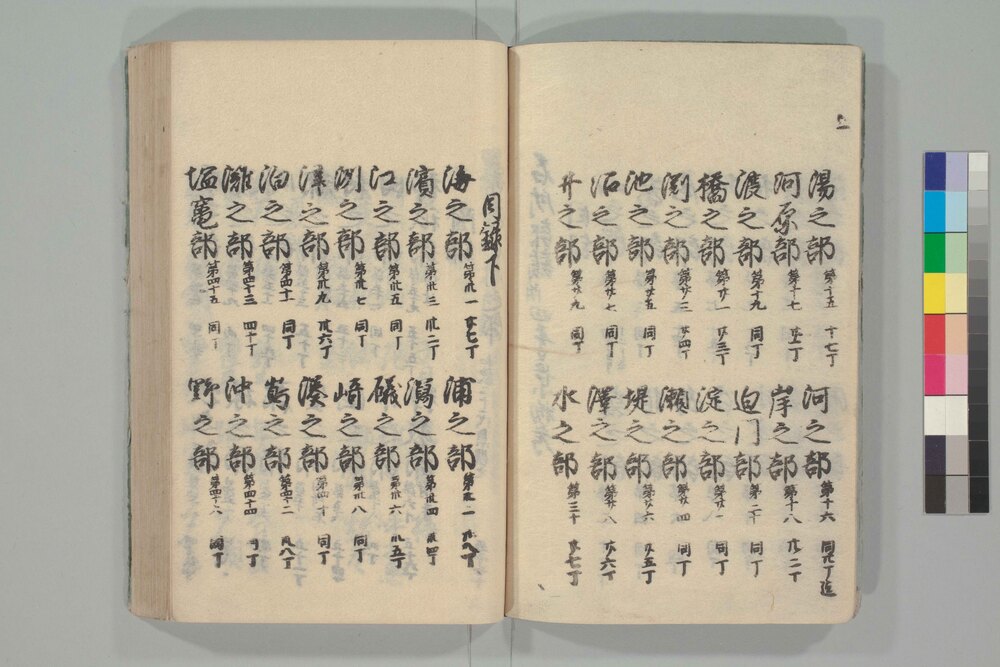 湯之部 第十五 十七丁 河之部 第十六
河原部 第十七 岸之部 第十八 廿二丁
渡之部 第十九 同丁 迫門部 第二十 同丁
橋之部 第廿一 廿三丁 淀之部 同丁
渕之部 第廿三 廿四丁 瀬之部 第廿四 同丁
池之部 第廿五 同丁 堤之部 第廿六 廿五丁
沼之部 第廿七 同丁 澤之部 第廿八 廿六丁
井之部 第廿九 同丁 水之部 第三十 廿七丁
目録下
海之部 第卅一 廿七丁 浦之部
濱之部 第卅三 卅二丁 潟之部 第卅四 卅四丁
江之部 第卅五 同丁 磯之部 第卅六 卅五丁
洲之部 第卅七 同丁 崎之部 第卅八 同丁
津之部 第卅九 卅六丁 湊之部 第四十 同丁
泊之部 第四十一 同丁 嶌之部 第四十二 卅八丁
灘之部 第四十三 四十丁 沖之部 第四十四 同丁
塩竈部 第四十五 同丁 野之部 第四十六 同丁